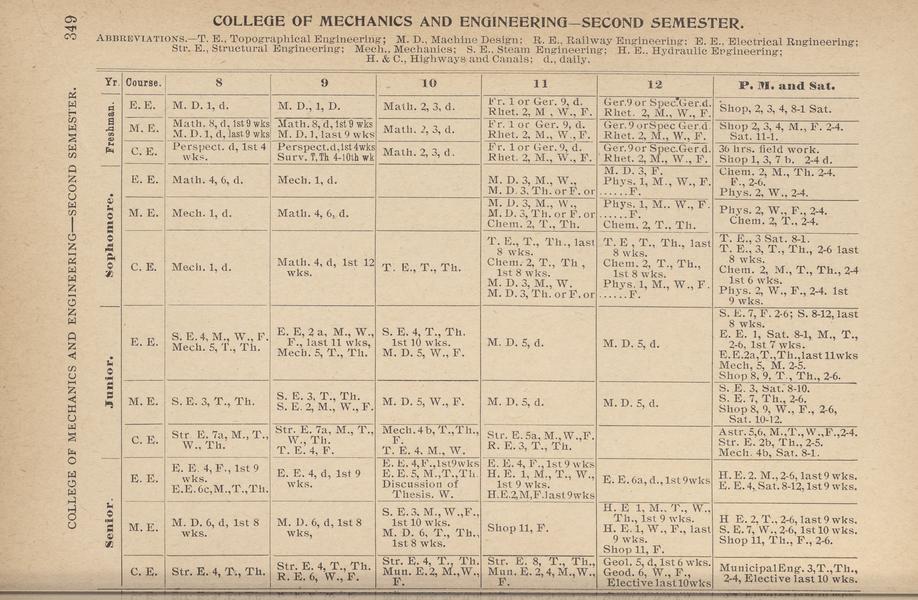 349
COLLEGE OF MECHANICS AND ENGINEERING—SECOND SEMESTER.
COLLEGE OF MECHANICS AND ENGINEERING—SECOND SEMESTER.
ABBREVIATIONS.—T. E., Topographical Engineering; M. D., Machine Design; R. E., Railway Engineering; E. E., Electrical Rngineering;
Str. E., Structural Engineering; Mech., Mechanics; S. E., Steam Engineering; H. E., Hydraulic Engineering;
H. & C., Highways and Canals; d., daily.
Yr. Course. 8 9 10 11 12 P. M. and Sat.
Freshman.
E. E.
M. D. 1, d.
M. D., 1, D.
Math. 2, 3, d.
Fr. 1 or Ger. 9, d.
Rhet. 2, M., W., F.
Ger.9 or Spec.Ger.d.
Rhet. 2, M., W., F.
Shop, 2, 3, 4, 8-1 Sat.
M. E.
Math. 8, d, 1st 9 wks
M. D. 1, d, last 9 wks
Math. 8, d, 1st 9 wks
M. D. 1, last 9 wks
Math. 2, 3, d.
Fr. 1 or Ger. 9, d.
Rhet. 2, M., W., F.
Ger. 9 or Spec Ger d.
Rhet. 2, M., W., F.
Shop 2, 3, 4, M., F. 2-4.
Sat. 11-1.
C. E.
Perspect. d, 1st 4
wks.
Perspect.d,1st 4wks
Surv. T,Th 4-10th wk
Math. 2, 3, d.
Fr. 1 or Ger. 9, d.
Rhet. 2, M., W., F.
Ger. 9 or Spec.Ger.d.
Rhet. 2, M., W., F.
36 hrs. field work.
Shop 1, 3, 7 b. 2-4 d.
Sophomore.
E. E.
Math. 4, 6, d.
Mech. 1, d.
M. D. 3, M., W.,
M. D. 3, Th. or F. or
M. D. 3, F.
Phys. 1, M., W., F.
......F.
Chem. 2, M., Th. 2-4.
F., 2-6.
Phys. 2, W., 2-4.
M. E.
Mech. 1, d.
Math. 4, 6, d.
M. D. 3, M., W.,
M. D. 3, Th. or F. or
Chem. 2, T., Th.
Phys. 1, M., W., F.
......F.
Chem. 2, T., Th.
Phys. 2, W., F., 2-4.
Chem. 2, T., 2-4.
C. E.
Mech. 1, d.
Math. 4, d, 1st 12
wks.
T. E., T., Th.
T. E., T., Th., last
8 wks.
Chem. 2, T., Th ,
1st 8 wks.
M. D. 3, M., W.
M. D. 3, Th. or F. or
T. E , T., Th., last
8 wks.
Chem. 2, T., Th.,
1st 8 wks.
Phys. 1, M., W., F.
......F.
T. E., 3 Sat. 8-1.
T. E., 3, T., Th., 2-6 last
8 wks.
Chem. 2, M., T., Th., 2-4
1st 6 wks.
Phys. 2, W., F., 2-4. 1st
9 wks.
Junior.
E. E.
S. E. 4, M., W., F.
Mech. 5, T., Th.
E. E, 2 a, M., W.,
F., last 11 wks,
Mech. 5, T., Th.
S. E. 4, T., Th.
1st 10 wks.
M. D. 5, W., F.
M. D. 5, d.
M. D. 5, d.
S. E. 7, F. 2-6; S. 8-12, last
8 wks.
E. E. 1, Sat. 8-1, M., T.,
2-6, 1st 7 wks.
E.E.2a,T.,Th.,last 11wks
Mech, 5, M. 2-5.
Shop 8, 9, T., Th., 2-6.
M. E.
S. E. 3, T., Th.
S. E. 3, T., Th.
S. E. 2, M., W., F.
M. D. 5, W., F.
M. D. 5, d.
M. D. 5, d.
S. E. 3, Sat. 8-10.
S. E. 7, Th., 2-6.
Shop 8, 9, W., F., 2-6,
Sat. 10-12.
C. E.
Str. E. 7a, M., T.,
W., Th.
Str. E. 7a, M., T.,
W., Th.
T. E. 4, F.
Mech. 4 b, T., Th.,
F.
T. E. 4, M., W.
Str. E. 5a, M.,W.,F.
R. E. 3, T., Th.
Astr. 5,6, M.,T.,W.,F.,2-4.
Str. E. 2b, Th., 2-5.
Mech. 4b, Sat. 8-1.
Senior.
E. E.
E. E. 4, F., 1st 9
wks.
E.E. 6c,M.,T.,Th.
E. E. 4, d, 1st 9
wks.
E. E. 4,F.,1st9wks
E. E. 5, M.,T.,Th.
Discussion of
Thesis. W.
E. E. 4, F., 1st 9 wks
H. E. 1, M., T., W.,
1st 9 wks.
H.E.2,M,F.last 9wks
E. E. 6a, d., 1st 9wks
H. E. 2, M., 2-6, last 9 wks.
E. E. 4, Sat. 8-12, 1st 9 wks.
M. E.
M. D. 6, d, 1st 8
wks.
M. D. 6, d, 1st 8
wks,
S. E. 3, M., W.,F.,
1st 10 wks.
M. D. 6, T., Th.,
1st 8 wks.
Shop 11, F.
H. E 1, M., T., W.,
Th., 1st 9 wks.
H. E. 1, W., F., last
9 wks.
Shop 11, F.
H E. 2, T., 2-6, last 9 wks.
S. E. 7, W., 2-6, 1st 10 wks.
Shop 11, Th., F., 2-6.
C. E.
Str. E. 4, T., Th.
Str. E. 4, T., Th.
R. E. 6, W., F.
Str. E. 4, T., Th.
Mun. E. 2, M.,W.,
F.
Str. E. 8, T., Th.,
Mun. E. 2, 4, M., W.,
F.
Geol. 5, d, 1st 6 wks.
Geod. 6, W., F.,
Elective last 10 wks
Municipal Eng. 3,T.,Th.,
2-4, Elective last 10 wks.